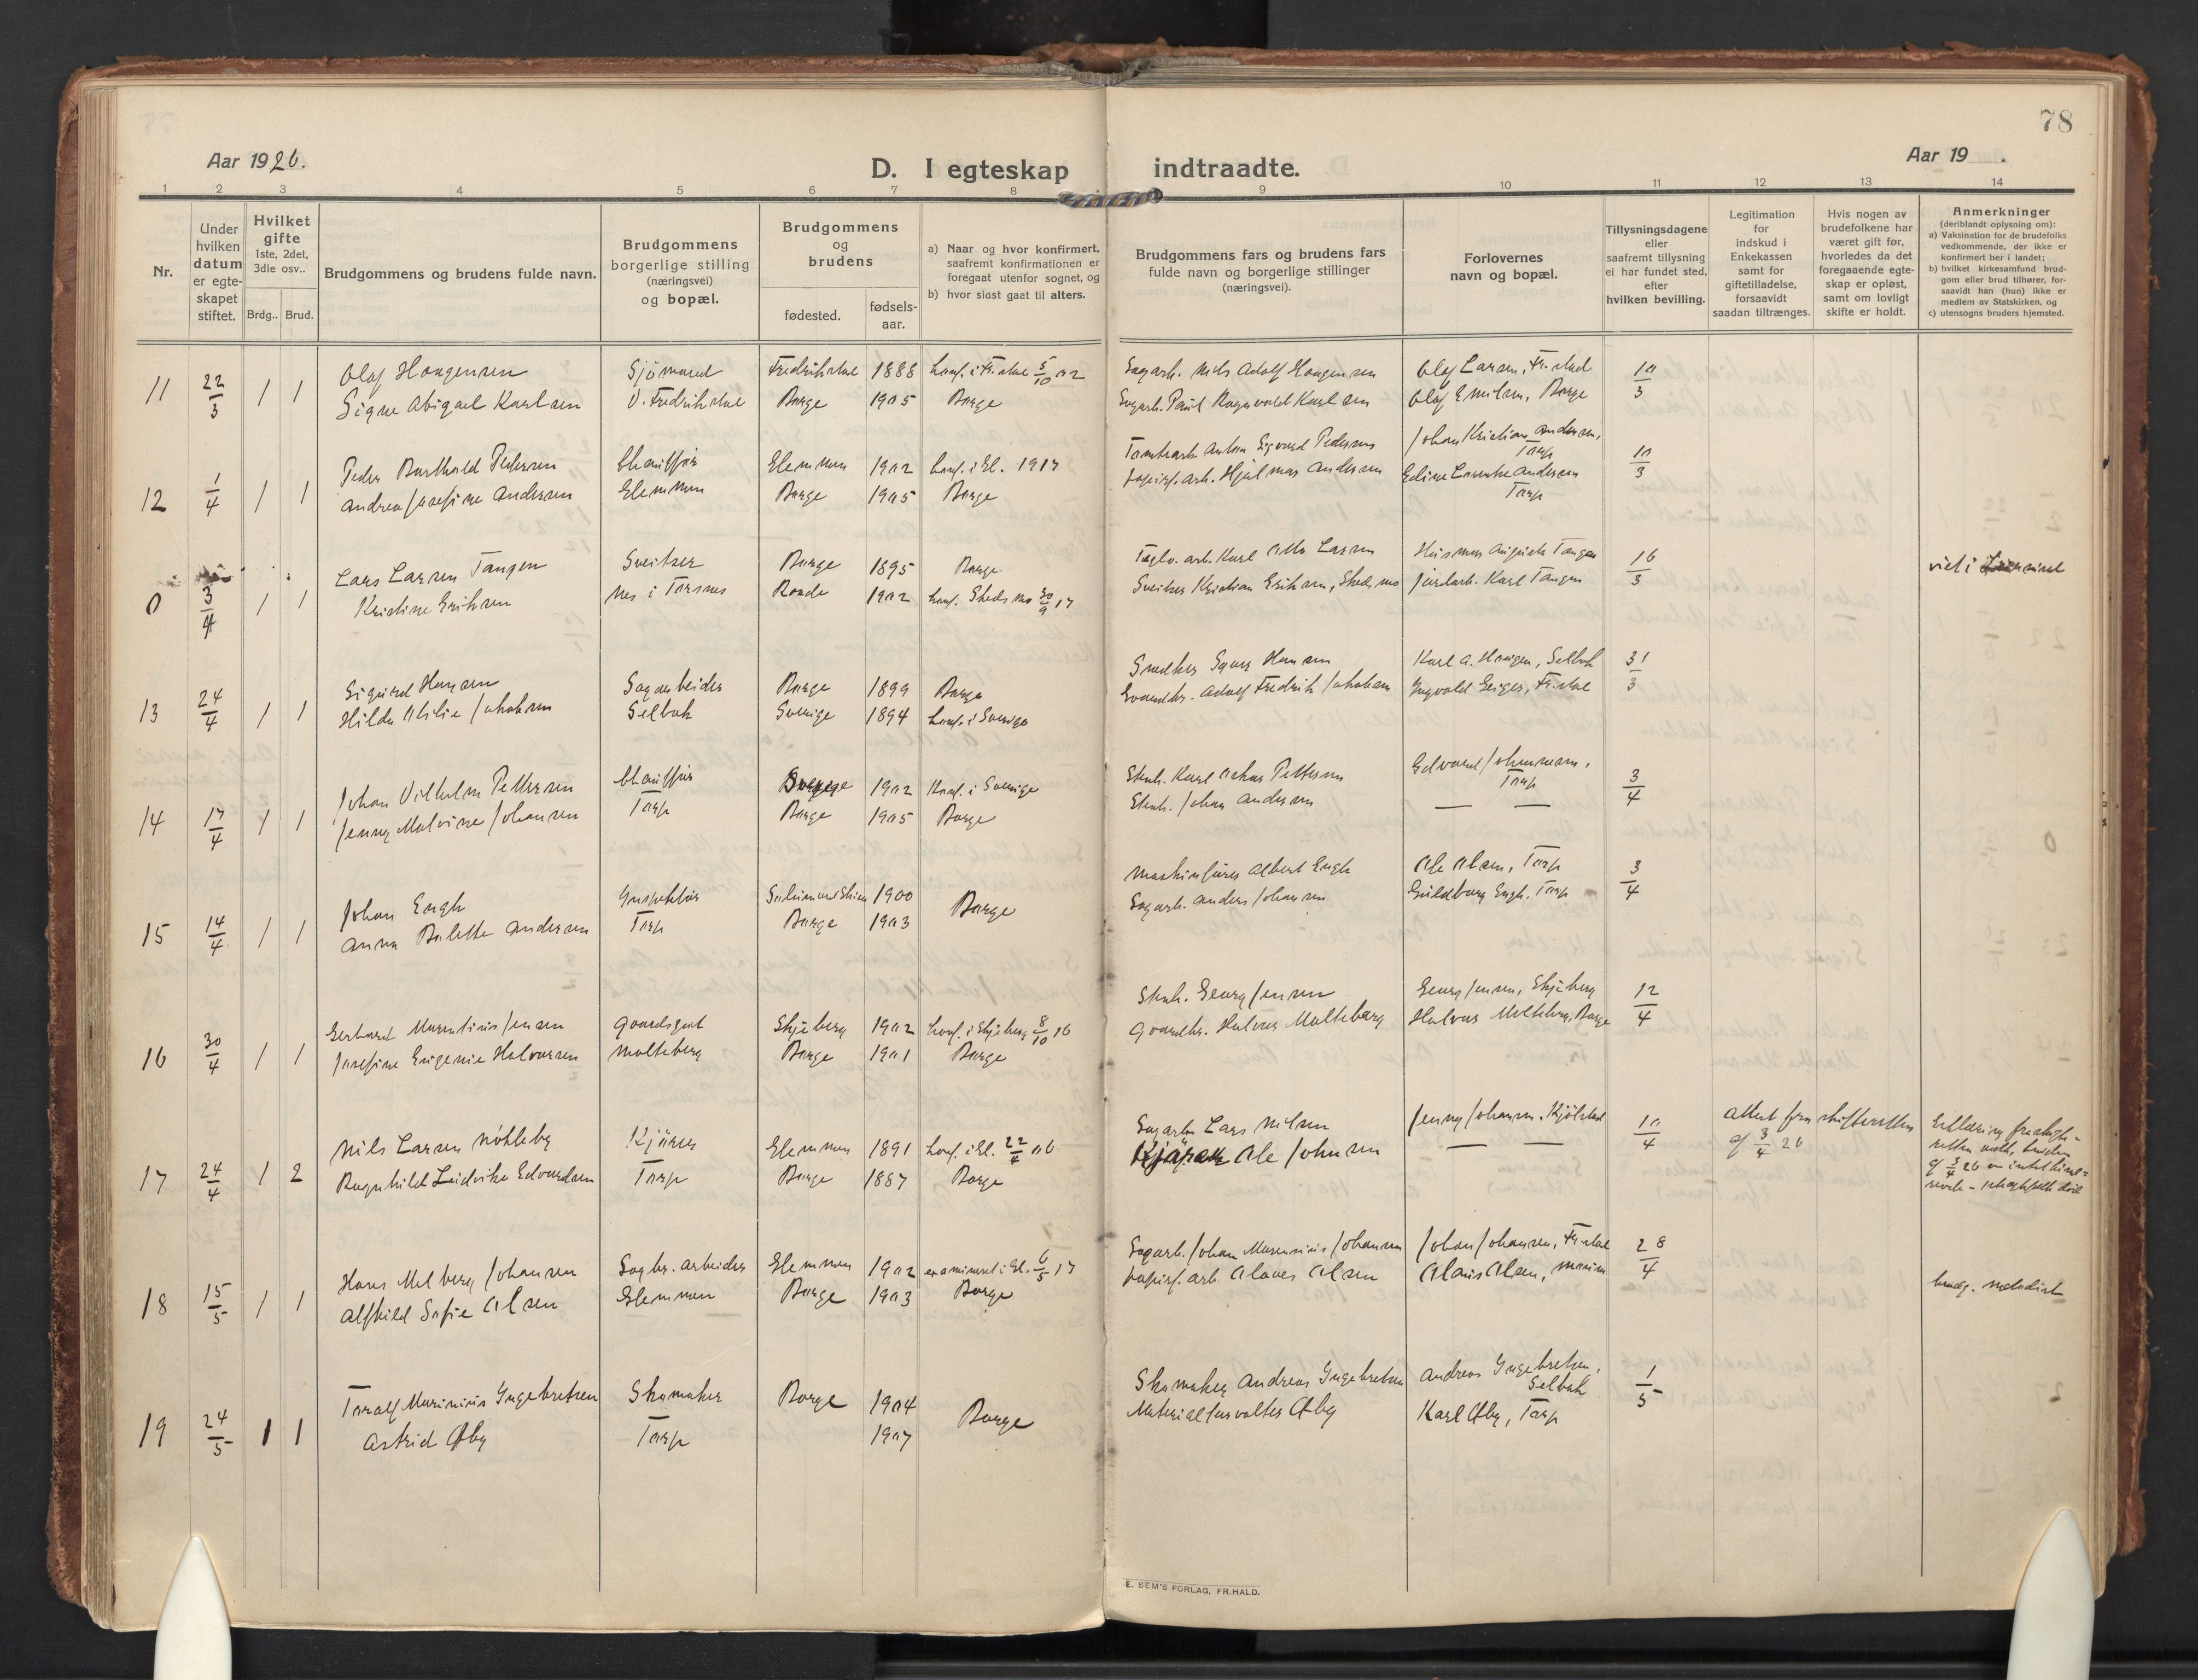 78
Aar 1926.
D. I egteskap indtraadte.
Aar 19 .
1 2 3 4 5 6 7 8 9 10 11 12 13 14
Nr.
Under hvilken datum er egteskapet stiftet.
Hvilket gifte 1ste, 2det, 3die osv..
Brdg.. Brud.
Brudgommens og brudens fulde navn.
Brudgommens borgerlige stilling (næringsvei) og bopæl.
Brudgommens og brudens
fødested. fødselsaar.
a) Naar og hvor konfirmert, saafremt konfirmationen er foregaat utenfor sognet, og
b) hvor sidst gaat til alters.
Brudgommens fars og brudens fars fulde navn og borgerlige stillinger (næringsvei).
Forlovernes navn og bopæl.
Tillysningsdagene eller saafremt tillysning ei har fundet sted, efter hvilken bevilling.
Legitimation for indskud i Enkekassen samt for giftetilladelse, forsaavidt saadan tiltrænges.
Hvis nogen av brudefolkene har været gift før, hvorledes da det foregaaende egteskap er opløst, samt om lovligt skifte er holdt.
Anmerkninger (deriblandt oplysning om):
a) Vaksination for de brudefolks vedkommende, der ikke er konfirmert her i landet;
b) hvilket kirkesamfund brudgom eller brud tilhører, forsaavidt han (hun) ikke er medlem av Statskirken, og
c) utensogns bruders hjemsted.
11 22/3 1 1 Olaf Haagensen Sjömand Fredrikstad 1888 konf. i Fr.stad 5/10 02 Sagarb. Nils Adolf Haagensen Olaf Larsen, Fr.stad 10/3
Signe Abigael Karlsen V. Fredrikstad Borge 1905 Borge Sagarb. Paul Ragnvald Karlsen Olaf Emilsen, Borge
12 1/4 1 1 Peder Barthold Pedersen Chauffør Glemmen 1902 konf. i Gl. 1917 Tomtearb. Anton Sigvard Pedersen Johan Kristian Andersen, Torp 10/3
Andrea Josefine Andersen Glemmen Borge 1905 Borge papirf. arb. Hjalmar Andersen Edine Loventse Andersen Torp
0 3/4 1 1 Lars Larsen Tangen Sveitser Borge 1895 Borge Teglv. arb. Karl Otto Larsen Husmor August Tangen 16/3 viet i
Kristine Eriksen Nes i Torsnes Raade 1902 konf. Skedsmo 30/9 17 Sveitser Kristian Eriksen, Skedsmo jordarb. Karl Tangen
13 24/4 1 1 Sigurd Hansen Sagarbeider Borge 1899 Borge Snedker Hansen Karl A. Haugen, Selbak 31/3
Hilda Otilie Jakobsen Selbak Sverige 1894 konf. i Sverige Gaardbr. Adolf Fredrik Jakobsen Ingvald Geiger, Fr.stad
14 17/4 1 1 Johan Vilhelm Pettersen Chauffør Sverige 1902 Konf. i Sverige Stenh. Karl Oskar Pettersen Edvard Johannesen, Torp 3/4
Jenny Malvine Johansen Torp Borge 1905 Borge Stenh. Johan Andersen — —
15 14/4 1 1 Johan Engh Inspektør 1900 Borge Maskinfører Albert Engh Ole Olsen, Torp 3/4
Anna Bolette Andersen Torp Borge 1903 Sagarb. Anders Johansen Guldborg Engh, Torp
16 30/4 1 1 Gerhard Marentinius Jensen Gaardsgut Skjeberg 1902 konf. i Skjeberg 8/10 16 Stenh. Georg Jensen Georg Jensen, Skjeberg 12/4
Josefine Eugenie Halvorsen Molteberg Borge 1901 Borge Gaardbr. Halvor Molteberg Halvor Molteberg, Borge
17 24/4 1 2 Nils Larsen Nökleby Kjörer Glemmen 1891 konf. i Gl. 22/4 06 Sagarb. Lars Nilsen Jenny Johansen, Kjölstad 10/4 Attest fra skifteretten af 3/4 26
Ragnhild Ludvika Edvardsen Torp Borge 1887 Borge Kjörer Ole Johnsen — —
Erklæring fra
18 15/5 1 1 Hans Melberg Johansen Sagbr. arbeider Glemmen 1902 examineret i Gl. 6/5 17 Sagarb. Johan Marensius Johansen Johan Johansen, Fr.stad 28/4 brudg. metodist
Alfhild Sofie Olsen Glemmen Borge 1903 Borge papirf. arb. Olaves Olsen Olaus Olsen, Moum
19 24/5 1 1 Toralf Marinius Ingebretsen Skomaker Borge 1904 Borge Skomaker Andreas Ingebretsen Andreas Ingebretsen, Selbak 1/5
Astrid Øby Torp 1907 Materialforvalter Øby Karl Øby, Torp
E. SEM'S FORLAG, FR.HALD.